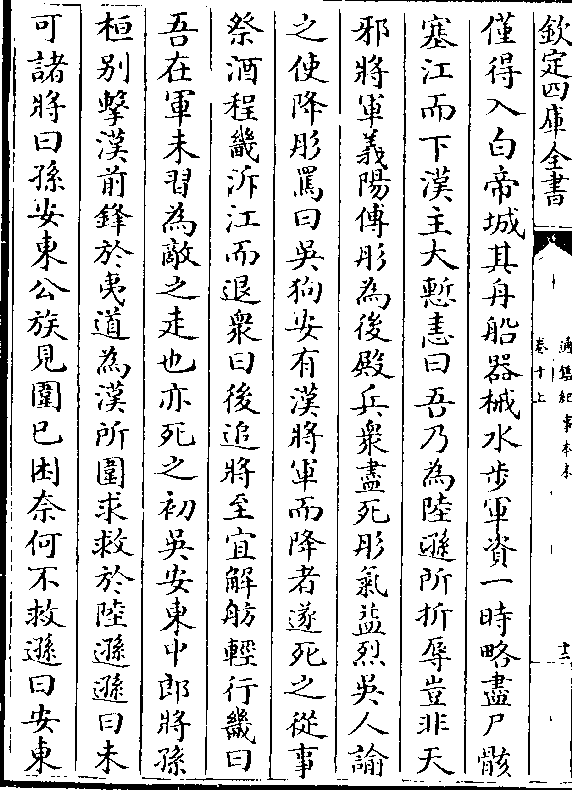 欽定四庫全書
通鑑紀事本末
卷十上
十三
僅得入白帝城其舟船器械水步軍資一時略盡尸骸
塞江而下漢主大慙恚曰吾乃為陸遜所折辱豈非天
邪將軍義陽傅肜為後殿兵衆盡死肜氣益烈吳人諭
之使降肜罵曰吳狗安有漢將軍而降者遂死之從事
祭酒程畿泝江而退衆曰後追將至宜解舫輕行畿曰
吾在軍未習為敵之走也亦死之初吳安東中郎將孫
桓别擊漢前鋒於夷道為漢所圍求救於陸遜遜曰未
可諸將曰孫安東公族見圍已困奈何不救遜曰安東